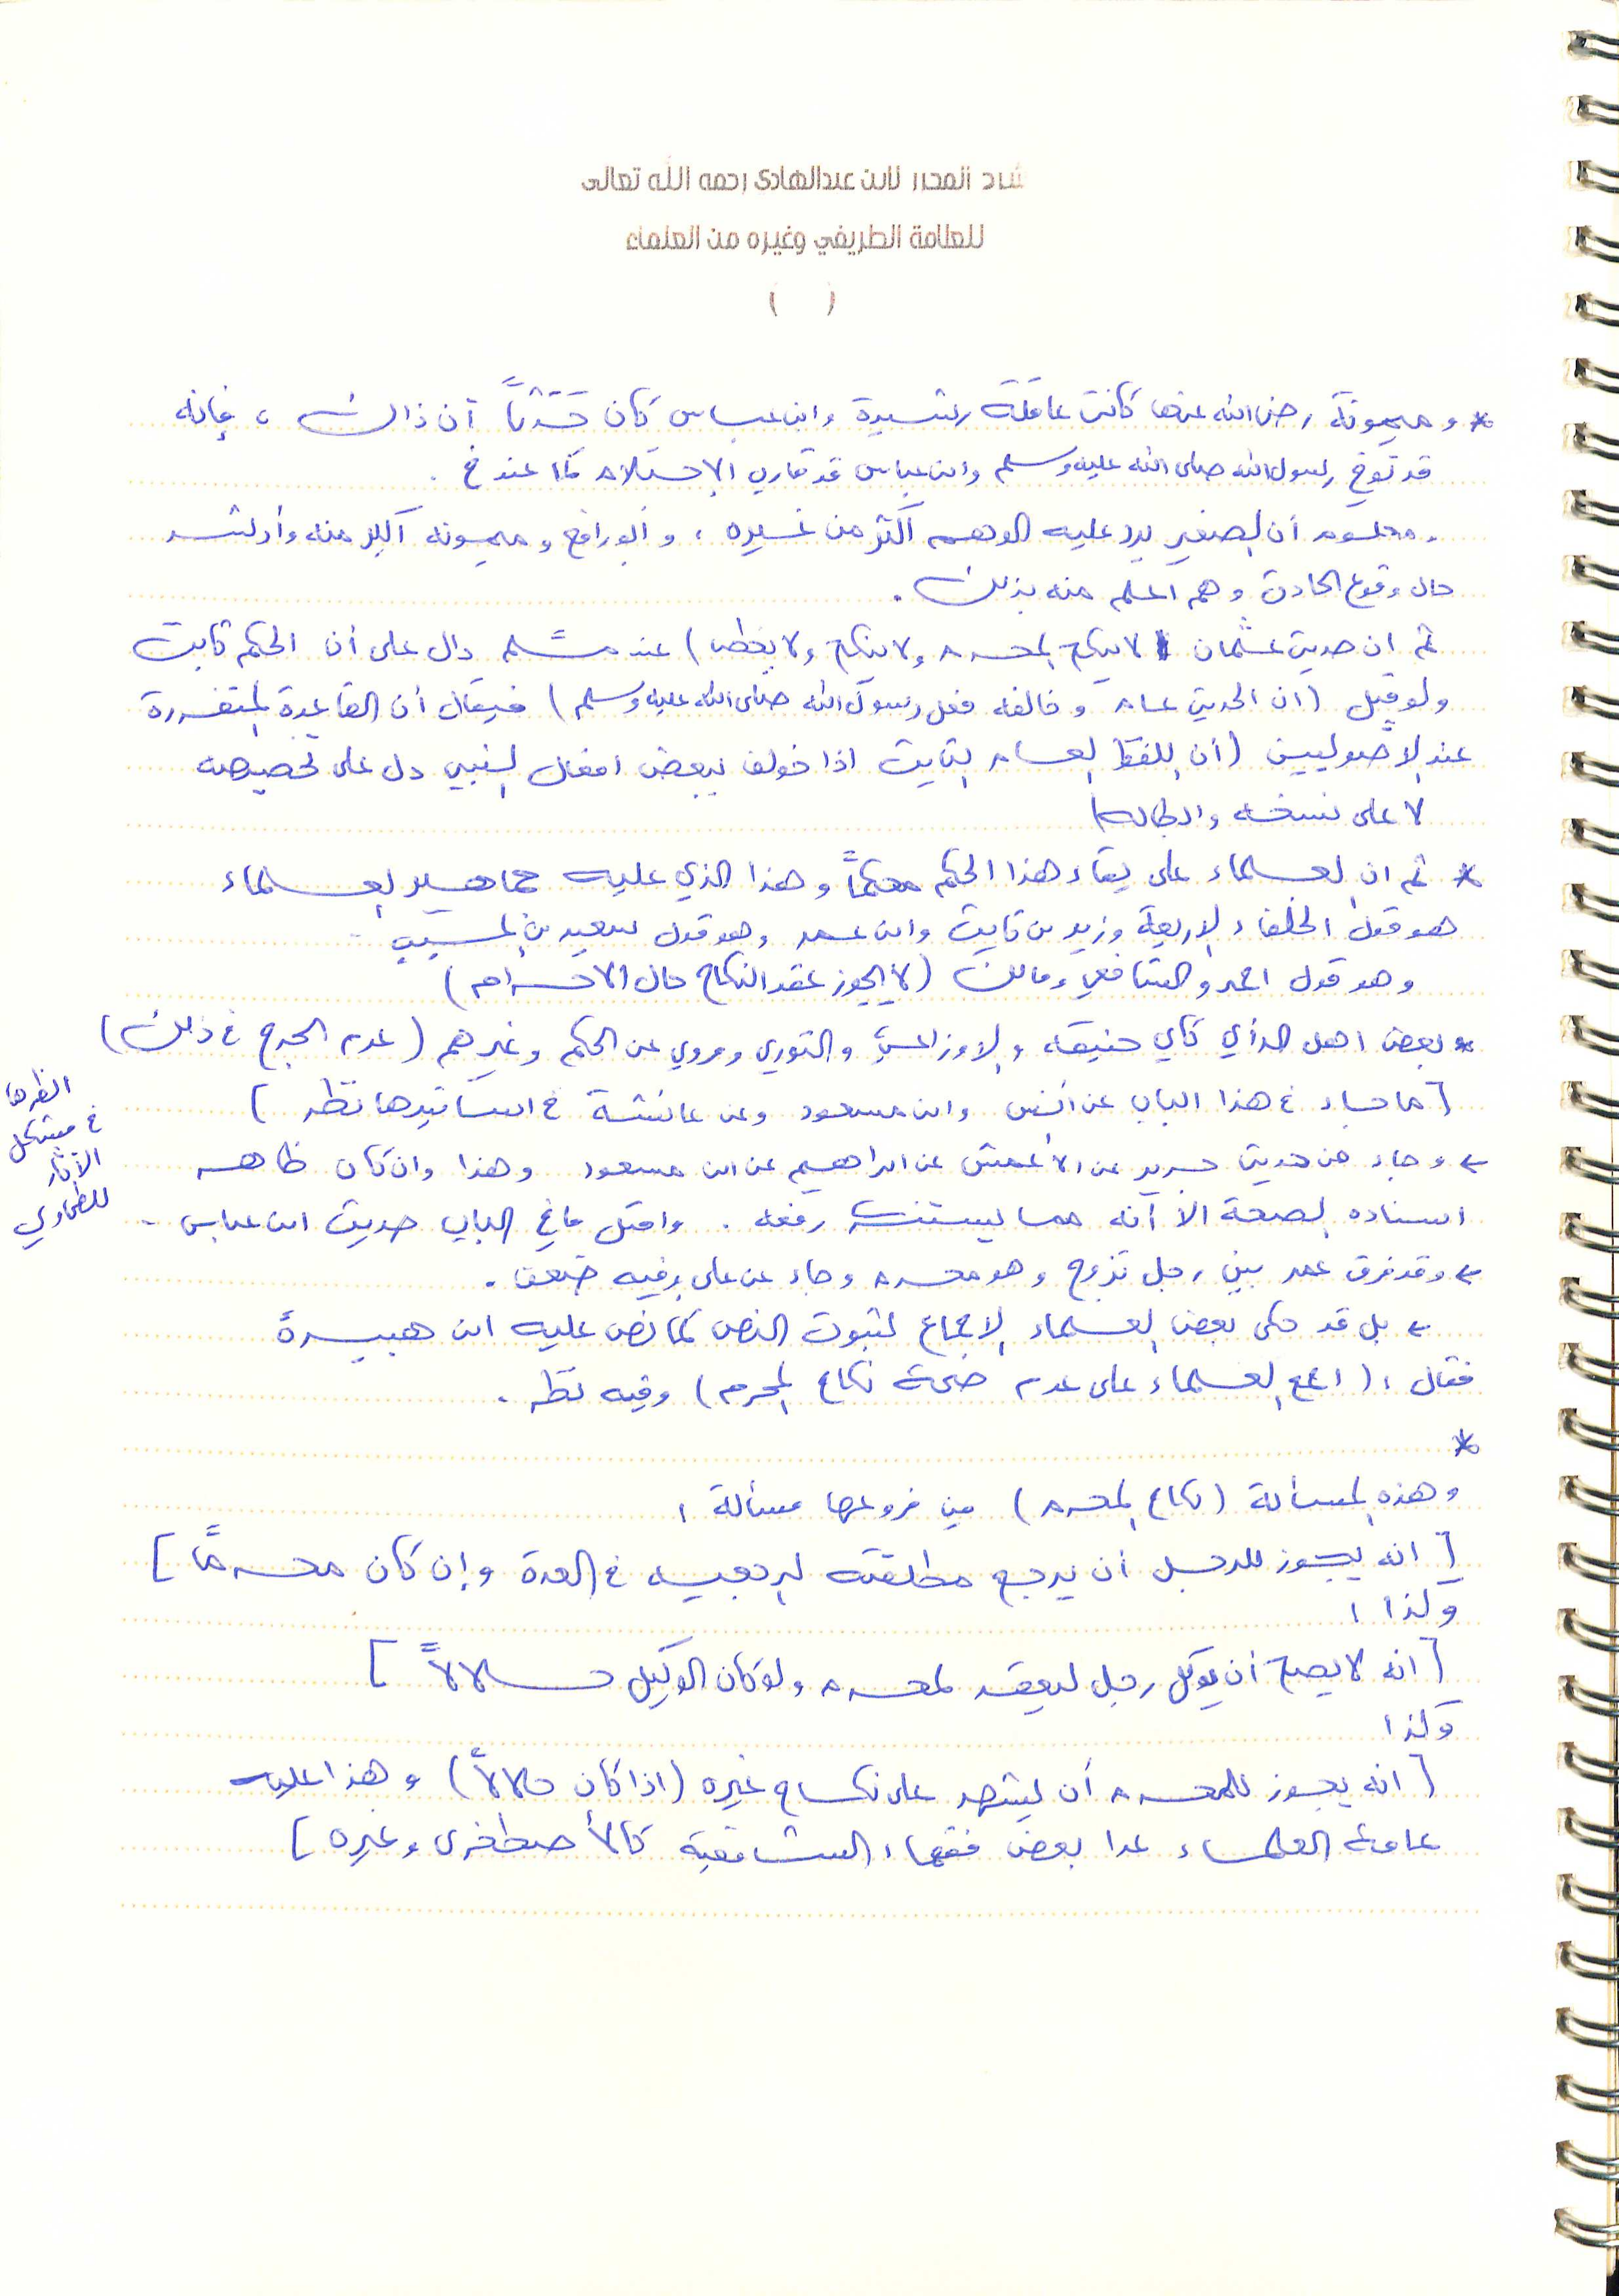 شرح المحرر لابن عبدالهادي رحمه الله تعالى
للعلامة الطريفي وغيره من العلماء
( )
* وميمونة رضي الله عنها كانت عاقلة رشيدة وابن عباس كان حَدَثاً آن ذاك ، فإنه
قد توفي رسول الله صلى الله عليه وسلم وابن عباس قد قارب الإحتلام كما عند خ .
. ومعلوم أن الصغير يرد عليه الوهم أكثر من غيره ، وأبو رافع وميمونه أكبر منه وأرشد
حال وقوع الحادث وهم اعلم منه بذلك .
ثم ان حديث عثمان ( لا ينكح المحرم ولا ينكح ولا يخطب ) عند مسلم دال على أن الحكم ثابت
ولو قيل ( ان الحديث عام وخالفه فعل رسول الله صلى الله عليه وسلم ) فيقال أن القاعدة المتقررة
عند الأصوليين ( أن اللفظ العام الثابت اذا خولف ببعض افعال النبي دل على تخصيصه
لا على نسخه وابطاله )
* ثم ان العلماء على بقاء هذا الحكم محكماً وهذا الذي عليه جماهير العلماء
هو قول الخلفاء الاربعة وزيد بن ثابت وابن عمر وهو قول سعيد بن المسيب
وهو قول احمد والشافعي ومالك ( لا يجوز عقد النكاح حال الاحرام )
* بعض اهل الرأي كأبي حنيفه والاوزاعي والثوري ومروي عن الحكم وغيرهم ( عدم الحرج في ذلك )
[ ما جاء في هذا الباب عن أنس وابن مسعود وعن عائشة في اسانيدها نظر ]
انظرها
في مشكل
الآثار
للطحاوي
← وجاء من حديث جرير عن الأعمش عن ابراهيم عن ابن مسعود وهذا وان كان ظاهر
اسناده الصحة الا أنه مما يستنكر رفعه . وامثل ما في الباب حديث ابن عباس .
← وقد فرق عمر بين رجل تزوج وهو محرم وجاء عن علي وفيه ضعف .
← بل قد حكى بعض العلماء الاجماع لثبوت النص كما نص عليه ابن هبيرة
فقال : ( اجمع العلماء على عدم صحة نكاح المحرم ) وفيه نظر .
*
وهذه المسألة ( نكاح المحرم ) من فروعها مسألة :
[ انه يجوز للرجل أن يرجع مطلقته الرجعيه في العدة وإن كان محرماً ]
وكذا :
[ انه لا يصح أن يوكل رجل ليعقد لمحرم ولو كان الوكيل حلالاً ]
وكذا :
[ انه يجوز للمحرم أن يشهد على نكاح غيره ( اذا كان حلالاً ) وهذا عليه
عامة العلماء عدا بعض فقهاء الشافعية كالأصطخري وغيره ]